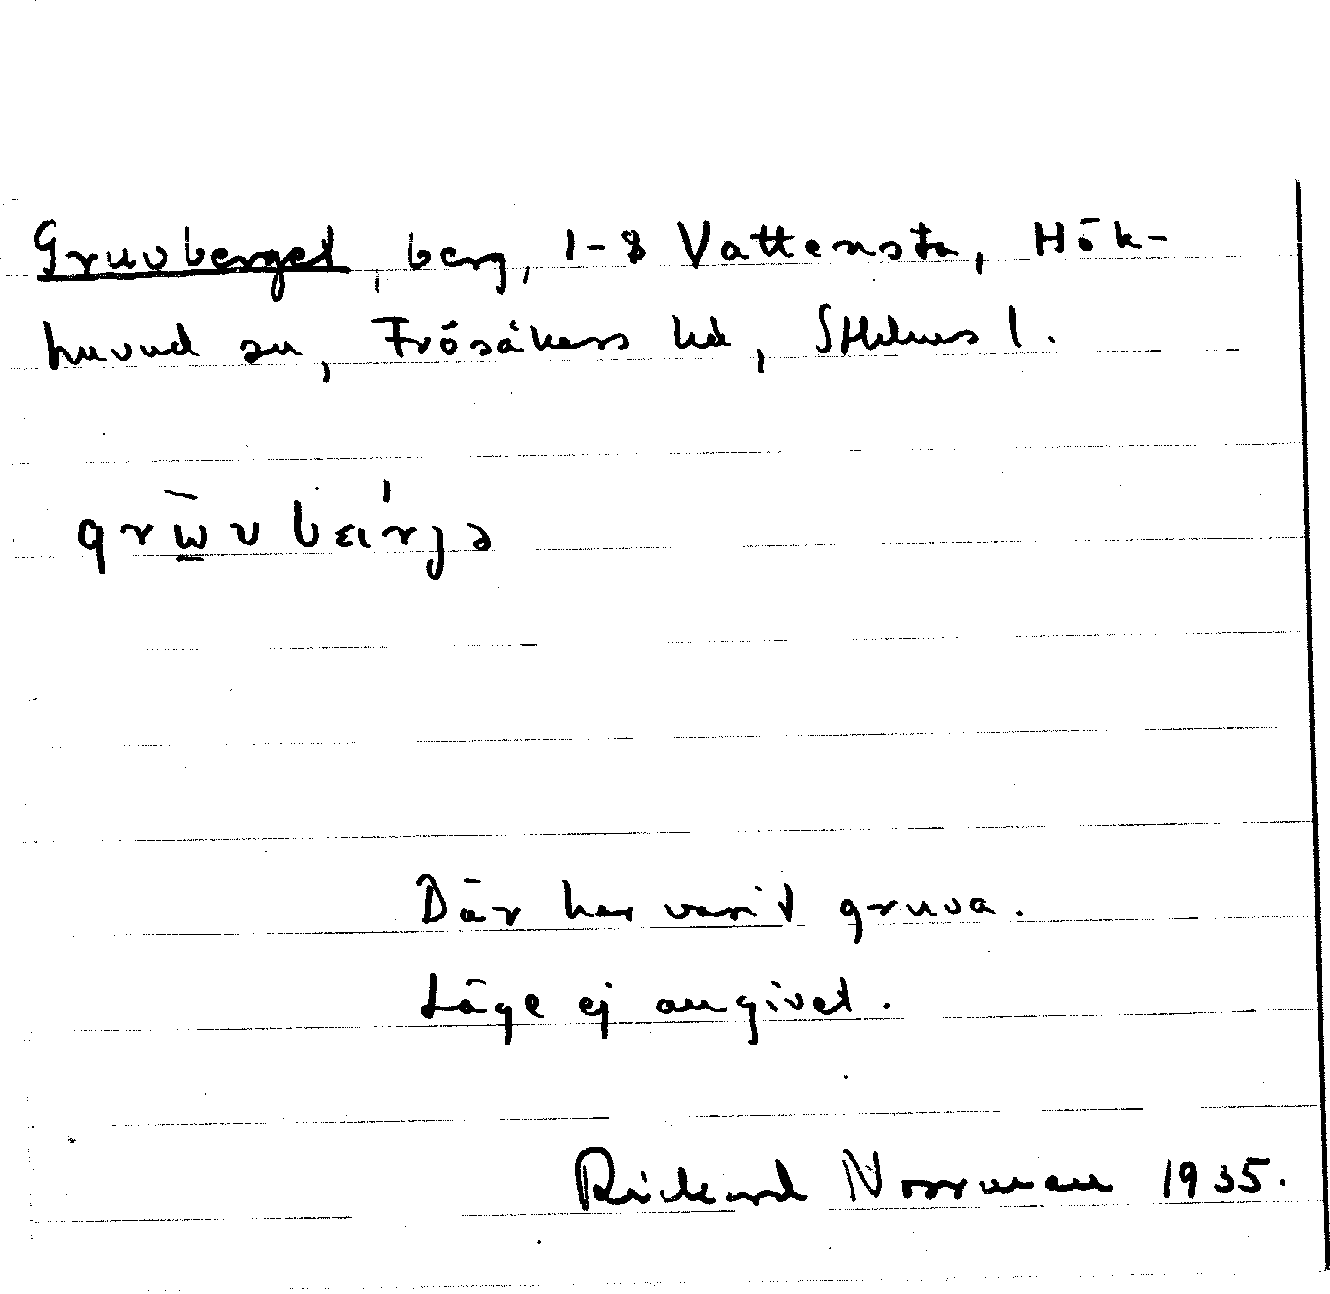 Gruvberget, berg, 1-8 Vattensta, Hök-
huvud sn, Frösåkers hd, Sthlms l.
Där har varit gruva.
Läge ej angivet.
Rickard Norrman 1935.